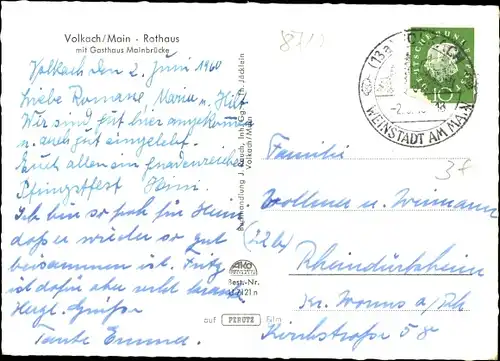 Volkach/Main - Rathaus
mit Gasthaus Mainbrücke
Volkach den 2. Juni 1960
Liebe Maria u. Hilt.
Wir sind gut hier angekommen
u. auch gut eingelebt.
Euch allen ein gnadenreiches
Pfingstfest Heini
Ich bin so froh für Heini
daß er wieder so gut
beisammen ist. Fritz
ist dafür aber nicht
Herzl. Grüße
Tante Emma.
Buchhandlung J. Rauch, Inh. Gg. u. Th. Jäcklein
Volkach/Main
Best.-Nr.
auf PERUTZ Film
8712
(13a)
WEINSTADT AM MAIN
DEUTSCHE BUNDESPOST
10
Familie
Vollmer u. Weimann
(22b)
Rheindürkheim
Kr. Worms a/Rh
Kirchstraße 58